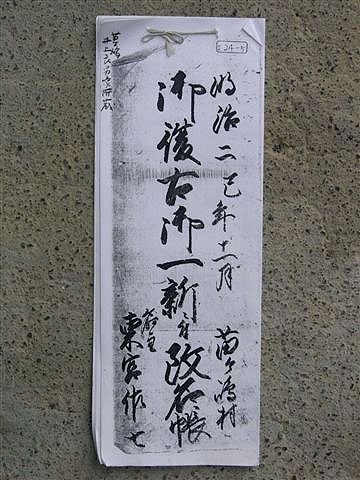 S24-5
明治二巳年十一月
苗ヶ嶋村
御復古御一新ニ付改名帳
名主
東宮作七